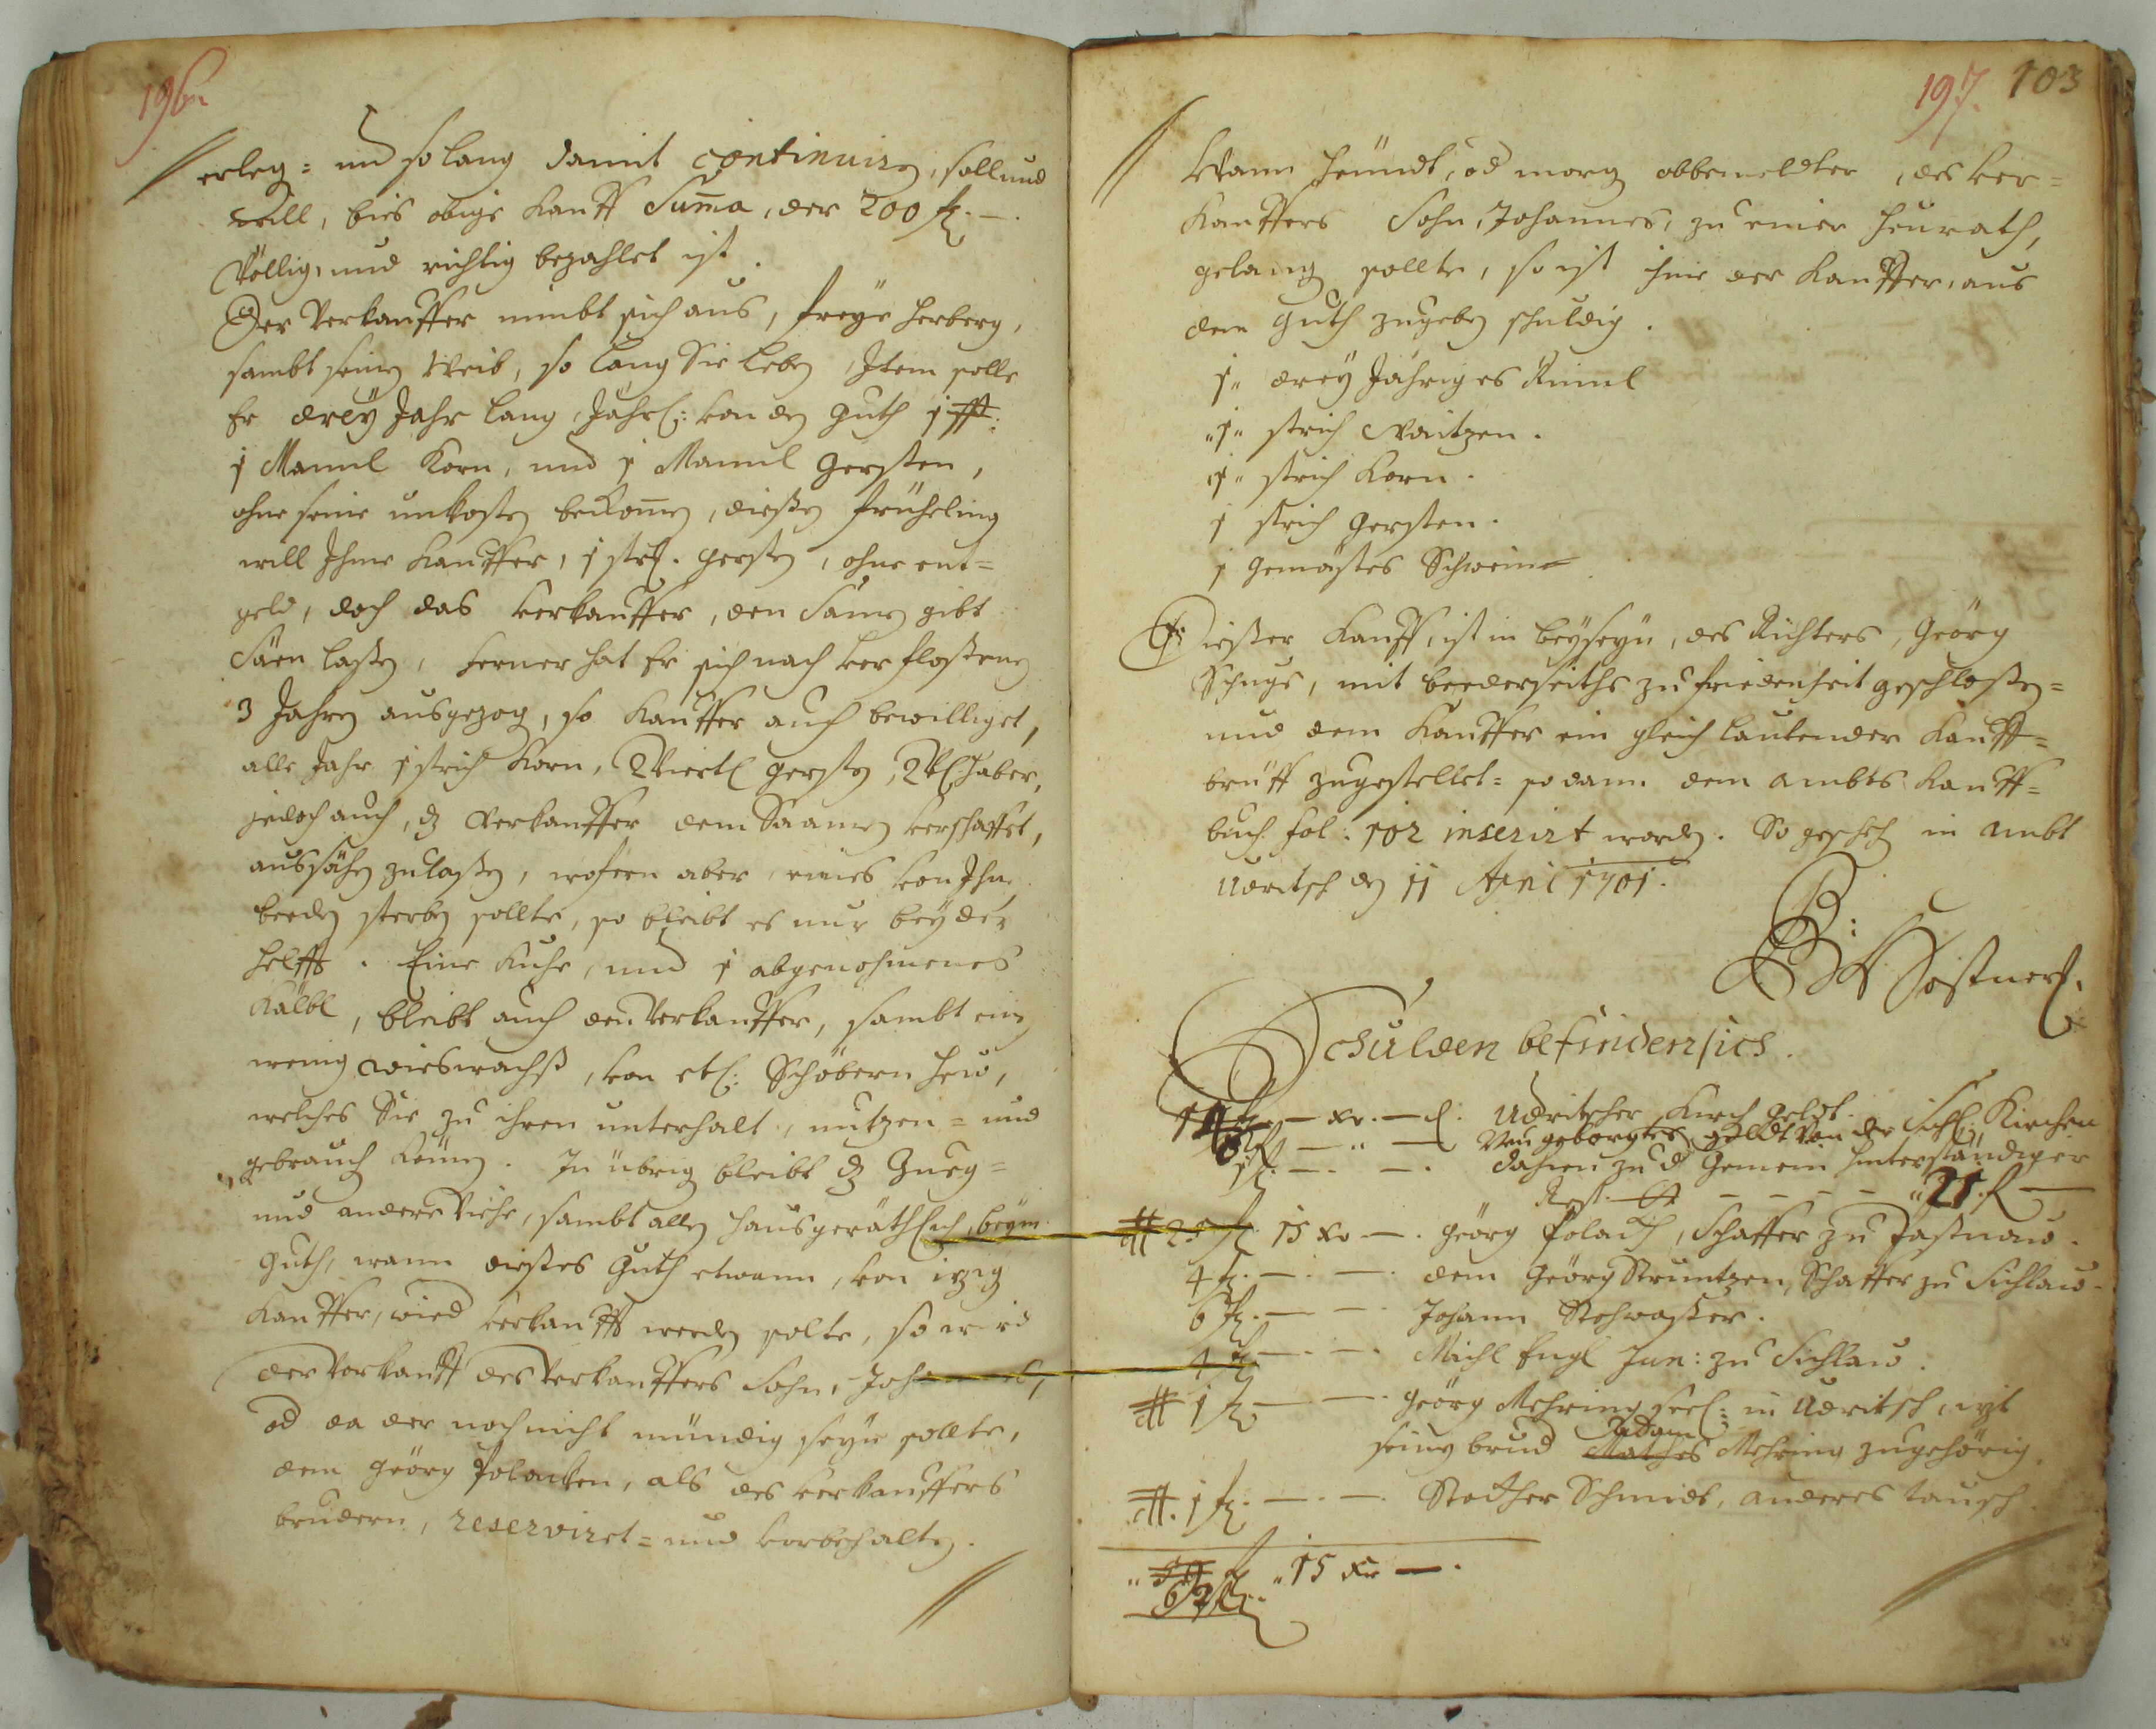 196.
erleg= und so lang damit continuiren, soll und
will, bies obige Kauff Suma, der 200 fl. —.
Völlig, und richtig bezahlet ist.
Der Verkauffer nimbt sich aus, freÿe Herberg,
sambt seinen Weib, so lang Sie leben, Item solle
Er dreÿ Jahr lang, Jährl: von den Guth
1 Mannl Korn, und 1 Mannl Gersten,
ohne seine unkosten bekomen, diesen Früheling
will Ihme Kauffer, 1 str. Gersten, ohne ent=
geld, doch das verkauffer, den Samen gibt
Säen lassen, ferner hat Er sich nach verflossenen
3 Jahren ausgezogen, so Kauffer auch bewilliget,
alle Jahr 1 strich Korn, 2 Viertl Gersten, 2 Vl. Haber,
jedoch auch, dz Verkauffer dem Saamen verschaffet,
aussähen zulassen, wofern aber, eines von Ihnen
beeden sterben sollte, so bleibt es nur beÿ der
Helfft. Eine Kuhe, und 1 abgenohmenes
Kälbl, bleibt auch den Verkauffer, sambt ein
wenig Wieswachs, von etl: Schöbern Heu,
welches Sie zu ihren unterhalt, nutzen= und
gebrauch können. In übrig bleibt dz Zueg=
und andere Viehe, sambt allen Hausgeräthlich, beÿm
Guth, wann dieses Guth etwann, von itzig
Kauffer, wied verkaufft werden solte, so wird
der Vorkauff des Verkauffers Sohn, Johannes,
od da der noch nicht mündig seÿn sollte,
dem Geörg Polacken, als des verkauffers
brudern, reserviret= und vorbehalten.
197. 103
Wann heundt, od morg obbemeldter, des Ver=
Kauffers Sohn, Johannes, zu einer Heurath,
gelang sollte, so ist ihme der Kauffer, aus
dem Guth zugeben schuldig.
1" dreÿ Jähriges Rinnl
"1" strich Waitzen.
1" strich Korn.
1 strich Gersten.
1 gemästes Schwein
Diesser Kauff, ist in beÿseÿn, des Richters, Geörg
mit beederseiths zufriedenheit geschlossen=
und dem Kauffer ein gleich lautender Kauff=
brüff zugestellet= sodann dem ambts Kauff=
buch fol. 102 inserirt worden. So gescheh in ambt
Udritsch den 11 April 1701.
Schulden befinden sich.
fl. — xr. — d. Udritscher Kirch geldt.
Neu geborgtes geldt von der Kirchen
1 fl. — . — . dahien zu d Gemein hinterständiger
Rest — — — — "21. fl —
15 xr —. Geörg Polack, Schaffer zu
4 fl. — . — . dem Geörg Schaffer zu Sichlau.
6 fl. — — Johann Rohwasser.
4 fl — . — . Michl Engl Jun: zu Sichlau.
1 fl — — . Geörg Mehring seel: in Udritsch, itzt
Adam
seinen brud Mathes Mehring zugehörig.
1 fl. — . — . Schmidt, anderes tausch.
" 15 xr — .